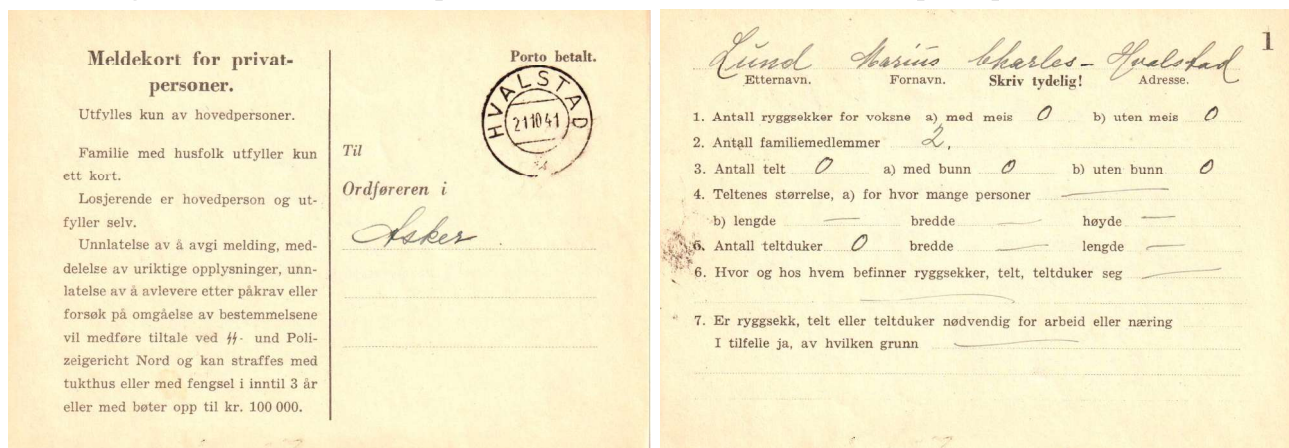 Meldekort for privat-
personer.
Utfylles kun av hovedpersoner.
Familie med husfolk utfyller kun
ett kort.
Losjerende er hovedperson og ut-
fyller selv.
Unnlatelse av å avgi melding, med-
delelse av uriktige opplysninger, unn-
latelse av å avlevere etter påkrav eller
forsøk på omgåelse av bestemmelsene
vil medføre tiltale ved ᛋᛋ- und Poli-
zeigericht Nord og kan straffes med
tukthus eller med fengsel i inntil 3 år
eller med bøter opp til kr. 100 000.
Porto betalt.
HVALSTAD
21 10 41
Til
Ordføreren i
Asker
1
Lund Marius Charles - Hvalstad
Etternavn. Fornavn. Skriv tydelig! Adresse.
1. Antall ryggsekker for voksne a) med meis 0 b) uten meis 0
2. Antall familiemedlemmer 2,
3. Antall telt 0 a) med bunn 0 b) uten bunn 0
4. Teltenes størrelse, a) for hvor mange personer —
b) lengde — bredde — høyde —
5. Antall teltduker 0 bredde — lengde —
6. Hvor og hos hvem befinner ryggsekker, telt, teltduker seg —
—
7. Er ryggsekk, telt eller teltduker nødvendig for arbeid eller næring
I tilfelle ja, av hvilken grunn —